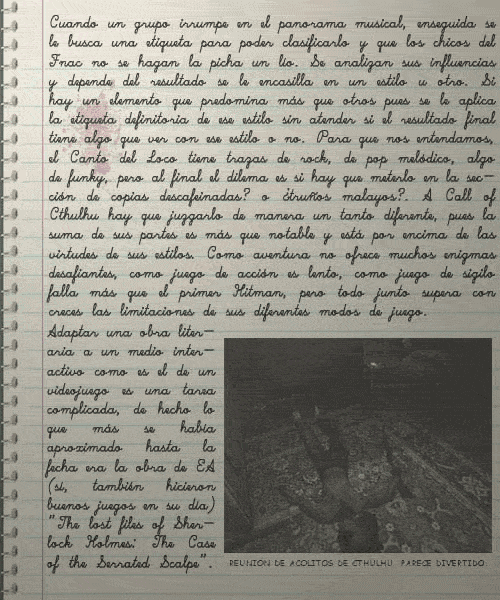 Cuando un grupo irrumpe en el panorama musical, enseguida se
le busca una etiqueta para poder clasificarlo y que los chicos del
Fnac no se hagan la picha un lío. Se analizan sus influencias
y depende del resultado se le encasilla en un estilo u otro. Si
hay un elemento que predomina más que otros pues se le aplica
la etiqueta definitoria de ese estilo sin atender si el resultado final
tiene algo que ver con ese estilo o no. Para que nos entendamos,
el Canto del Loco tiene trazas de rock, de pop melódico, algo
de funky, pero al final el dilema es si hay que meterlo en la sec-
ción de copias descafeinadas? o ¿truños malayos?. A Call of
Cthulhu hay que juzgarlo de manera un tanto diferente, pues la
suma de sus partes es más que notable y está por encima de las
virtudes de sus estilos. Como aventura no ofrece muchos enigmas
desafiantes, como juego de acción es lento, como juego de sigilo
falla más que el primer Hitman, pero todo junto supera con
creces las limitaciones de sus diferentes modos de juego.
Adaptar una obra liter-
aria a un medio inter-
activo como es el de un
videojuego es una tarea
complicada, de hecho lo
que más se había
aproximado hasta la
fecha era la obra de EA
(sí, también hicieron
buenos juegos en su día)
"The lost files of Sher-
lock Holmes: The Case
of the Serrated Scalpe".
REUNION DE ACOLITOS DE CTHULHU. PARECE DIVERTIDO.